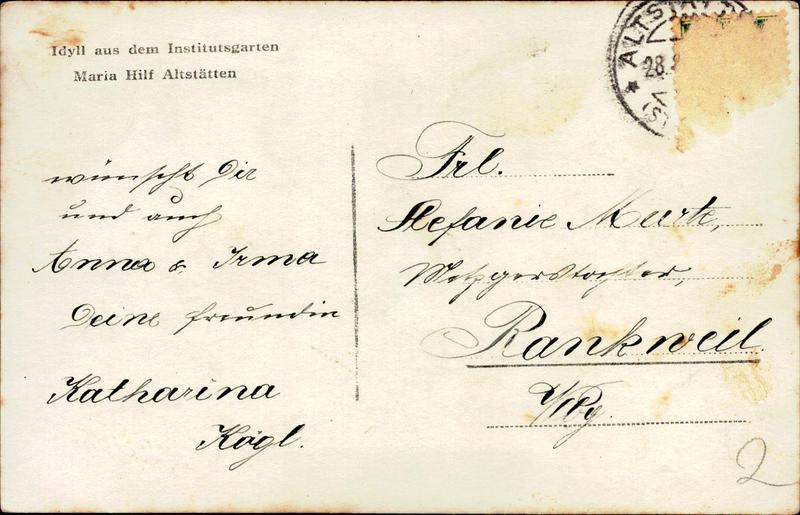 Idyll aus dem Institutsgarten
Maria Hilf Altstätten
wünscht Dir
und auch
Anna & Irma
Deine Freundin
Katharina
Kögl.
Frl.
Stefanie
Metzgerstochter,
Rankweil
Vbg.
28.
2